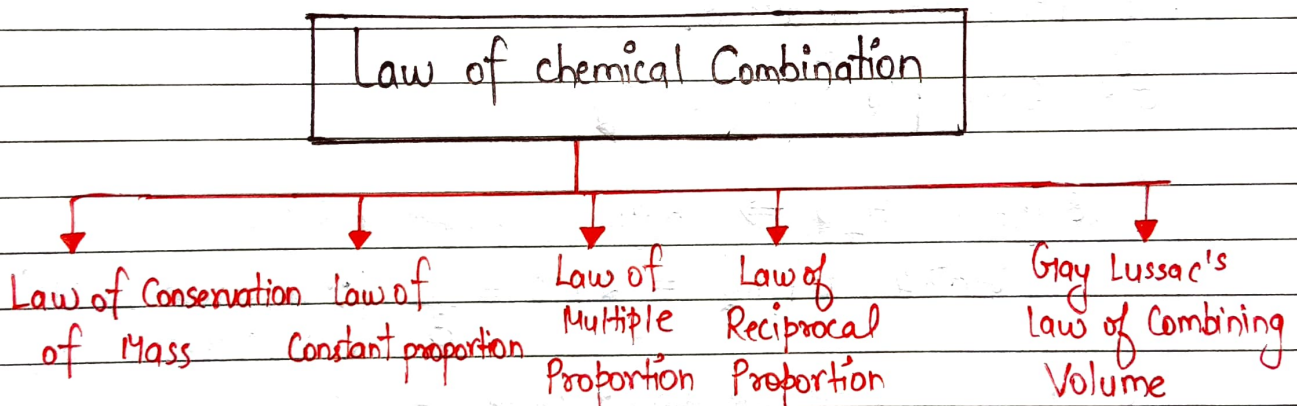 Law of chemical Combination
Law of Conservation
of Mass
Law of
Constant proportion
Law of
Multiple
Proportion
Law of
Reciprocal
Proportion
Gay Lussac's
Law of Combining
Volume